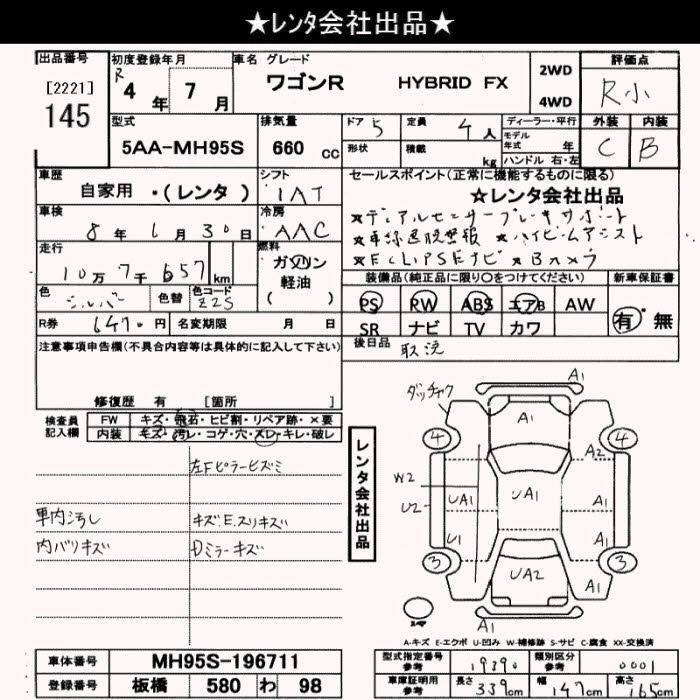 ★レンタ会社出品★
出品番号 初度登録年月 車名 グレード 評価点
[2221] R 4年 7月 ワゴンR HYBRID FX 2WD R小
145 4WD
型式 排気量 ドア 5 定員 4人 ディーラー・平行 外装 内装
5AA-MH95S 660 cc 形状 積載 kg モデル年式 年 C B
ハンドル 右・左
車歴 シフト セールスポイント(正常に機能するものに限る)
自家用 ・(レンタ ) IAT ★レンタ会社出品
車検 冷房 ★デュアルセンサーブレーキサポート
8年 6月 30日 AAC ★車線逸脱警報 ★ハイビームアシスト
走行 燃料 ★ECLIPSEナビ ★Bカメラ
10万7千657km ガソリン 装備品(純正品に限り○をつけてください) 新車保証書
色 シルバー 色替 色コード Z2S 軽油 PS PW ABS エアB AW 有・無
( ) SR ナビ TV カワ
R券 6470円 名変期限 月 日 後日品 取説
注意事項申告欄(不具合内容等は具体的に記入して下さい)
修復歴 有 [箇所 ]
検査員記入欄 FW キズ・飛石・ヒビ割・リペア跡・×要
内装 キズ・汚レ・コゲ・穴・スレ・キレ・破レ
左Fピラーヒズミ
車内汚し キズ.E.スリキズ
内バリキズ Dミラーキズ
レンタ会社出品
A1
A1
4 4
A2
W2
UA1 UA1 A1
U2
U1 A1
3 3
UA2 A1
A1
A-キズ E-エクボ U-凹み W-補修跡 S-サビ C-腐食 XX-交換済
車体番号 MH95S-196711 型式指定番号 参考 19390 類別区分 参考 0001
登録番号 板橋 580 わ 98 車庫証明用 参考 長さ 339cm 幅 147cm 高さ 165cm